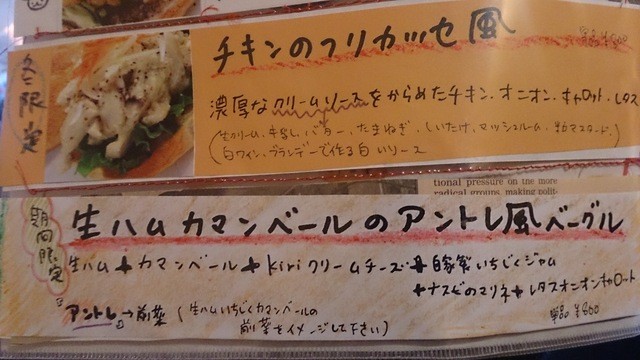 冬限定
チキンのフリカッセ風
濃厚なクリームソースをからめたチキン、オニオン、キャロット、レタス
(生クリーム、牛乳、バター、たまねぎ、しいたけ、マッシュルーム、粒マスタード、
白ワイン、ブランデーで作る白いソース
tional pressure on the more
radical groups, making polit-
期間限定
生ハムカマンベールのアントレ風ベーグル
生ハム+カマンベール+kiriクリームチーズ+自家製いちじくジャム
+ナスビのマリネ+レタスオニオンキャロット
アントレ→前菜(生ハムいちじくカマンベールの
前菜をイメージして下さい)
単品¥800